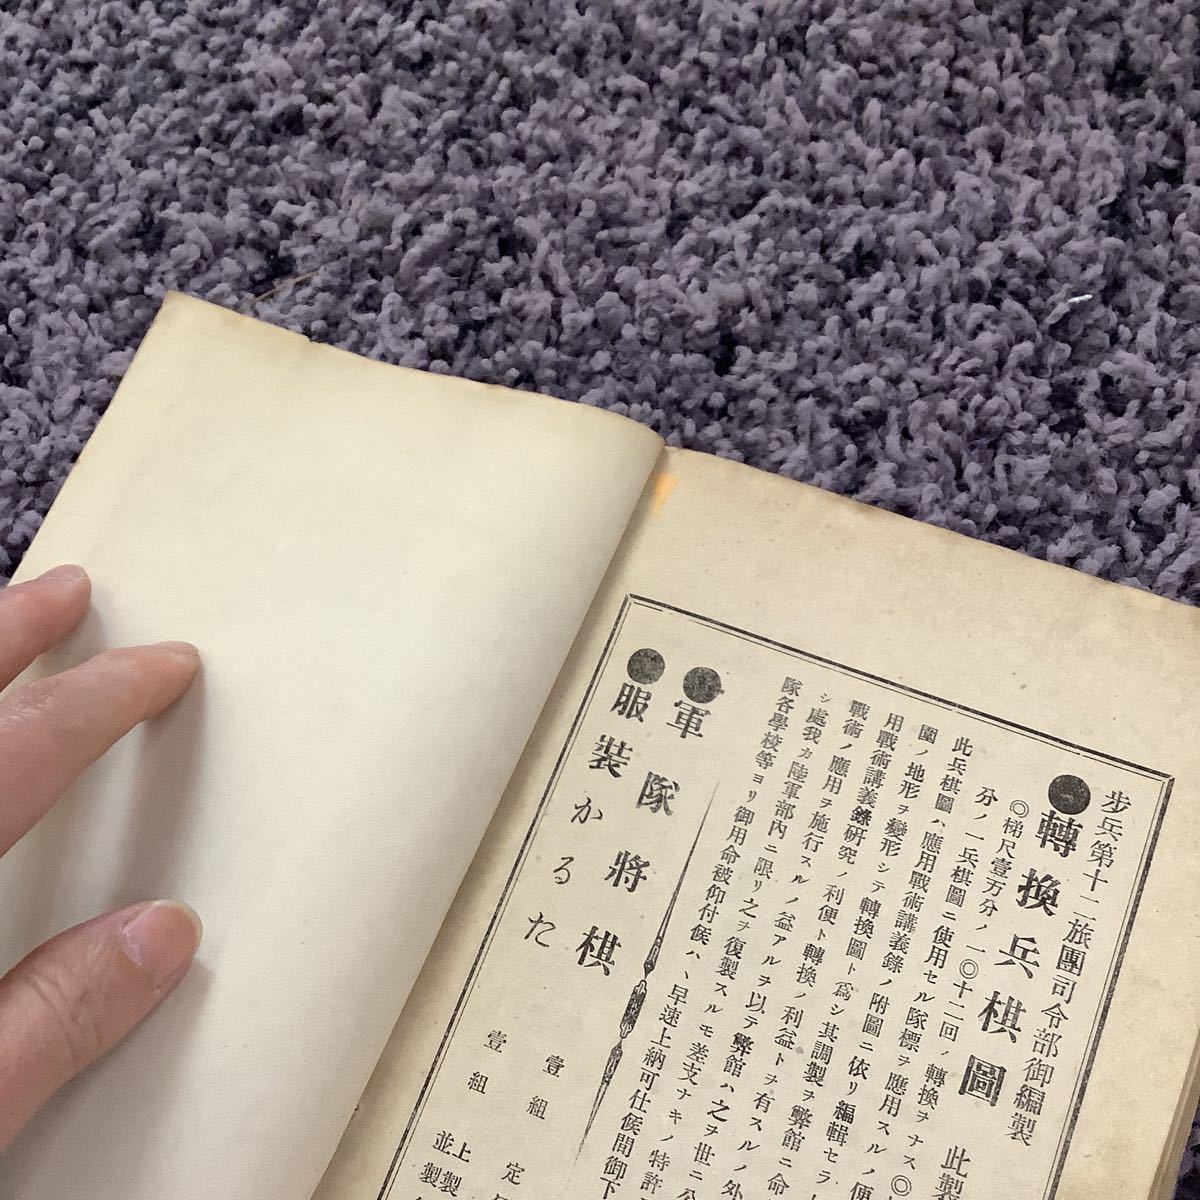 步兵第十二旅團司令部御編製
●轉換兵棋圖
此製
◎梯尺壹万分ノ一◎十二回ノ轉換ヲナス◎
分ノ一兵棋圖ニ使用セル隊標ヲ應用スルノ便
此兵棋圖ハ應用戰術講義錄ノ附圖ニ依リ編輯セラ
圖ノ地形ヲ變形シテ轉換圖ト爲シ其調製ヲ弊館ニ命
用戰術講義錄研究ノ利便ト轉換ノ利益トヲ有スルノ外
戰術ノ應用ヲ施行スルノ益アルヲ以テ弊館ハ之ヲ世ニ公
シ處我カ陸軍部內ニ限リ之ヲ復製スルモ差支ナキノ特許
隊各學校等ヨリ御用命被仰付候ハヽ早速上納可仕候間御下
●軍隊將棋 壹組 定
●服裝かるた 壹組 上製
並製